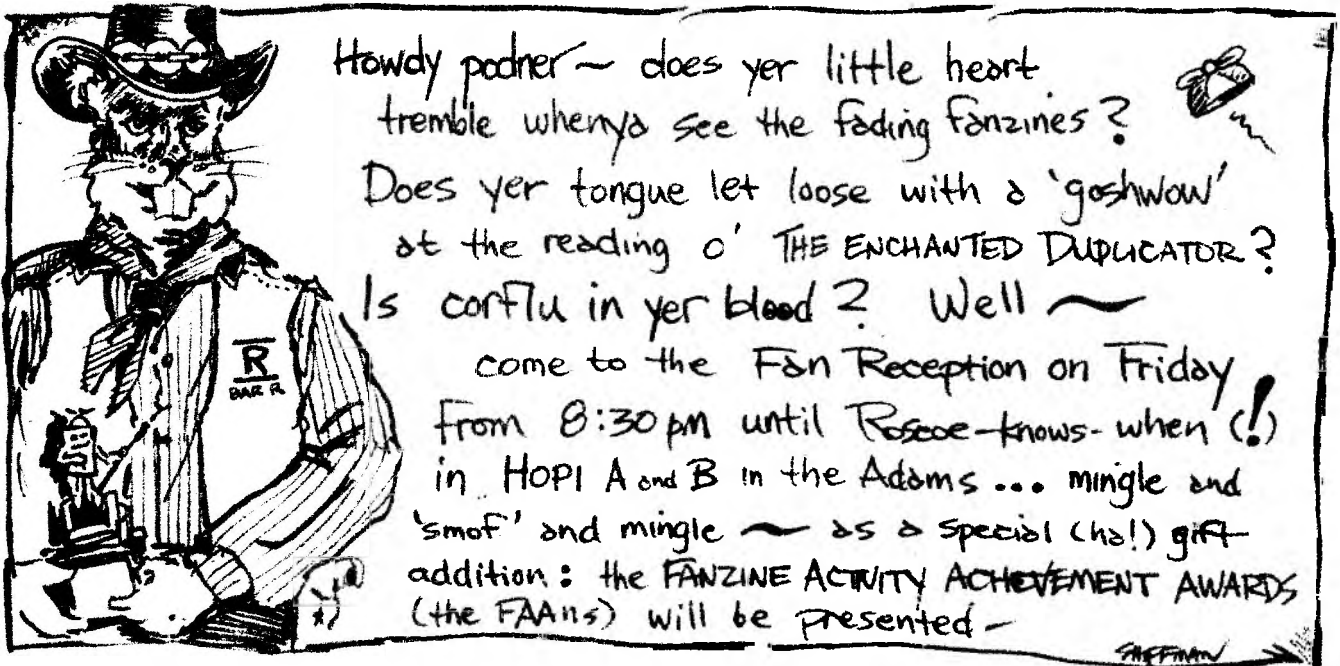 Howdy podner ~ does yer little heart
tremble whenya see the fading fanzines?
Does yer tongue let loose with a 'goshwow'
at the reading o' THE ENCHANTED DUPLICATOR?
Is corflu in yer blood? Well ~
come to the Fan Reception on Friday
from 8:30 pm until Roscoe-knows-when (!)
in HOPI A and B in the Adams ... mingle and
'smof' and mingle ~ as a special (ha!) gift
addition: the FANZINE ACTIVITY ACHIEVEMENT AWARDS
(the FAAns) will be presented -
R
BAR R
SHIFFMAN